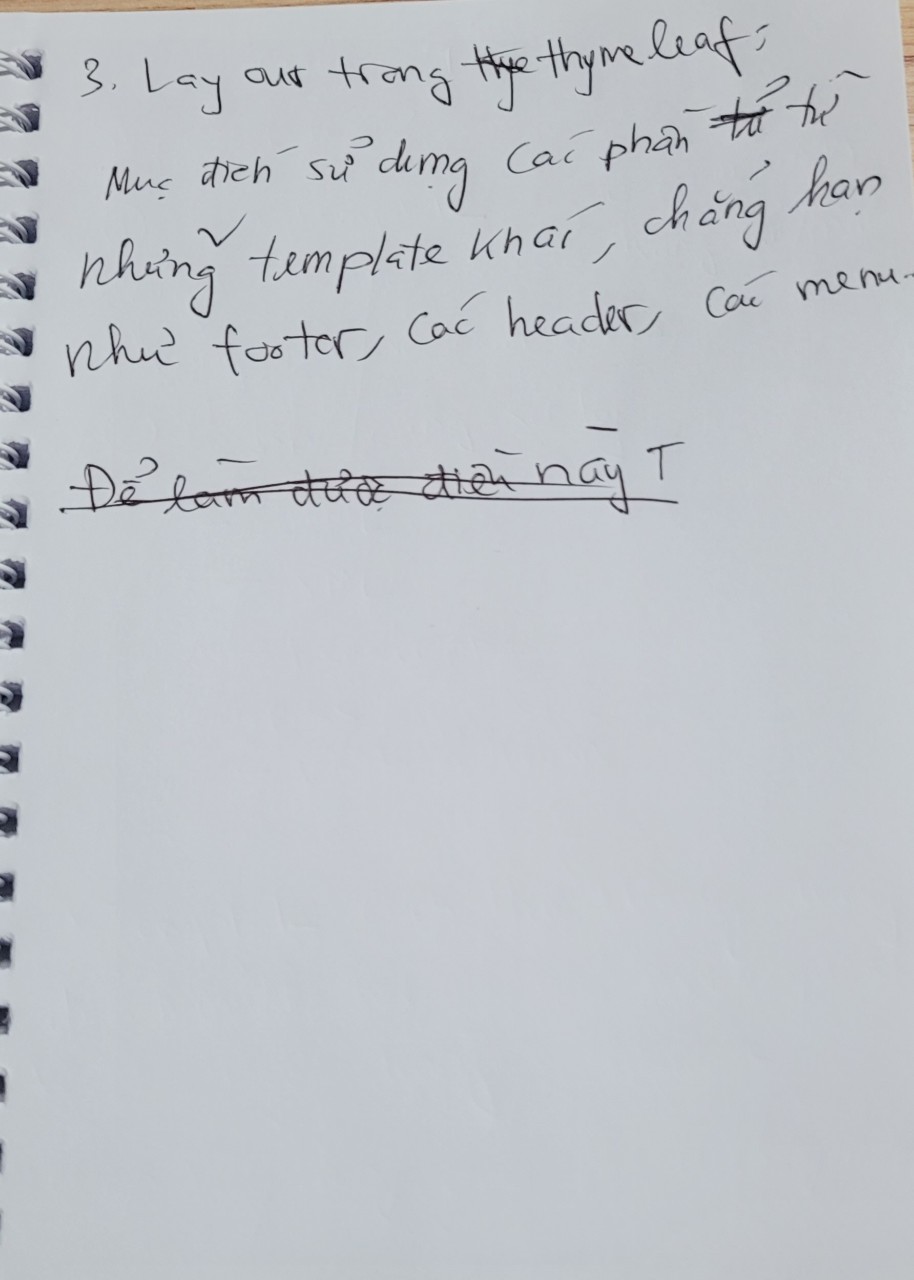 3. Layout trong thymeleaf:
Mục đích sử dụng các phần từ
những template khác, chẳng hạn
như footer, các header, các menu.
Để làm được điều này T